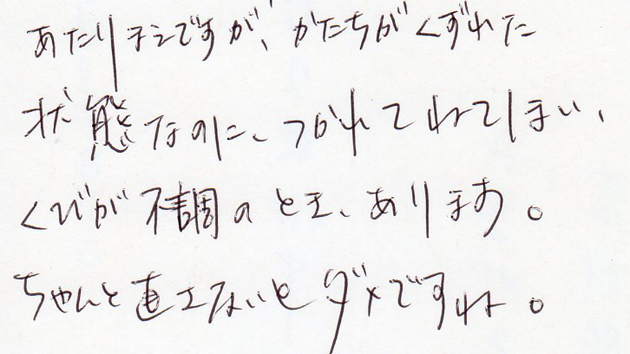 あたりマエですが、かたちがくずれた
状態なのに、つかれてねてしまい、
くびが不調のとき、あります。
ちゃんと直さないとダメですね。